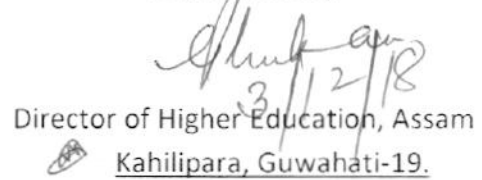 3/12/18
Director of Higher Education, Assam
Kahilipara, Guwahati-19.